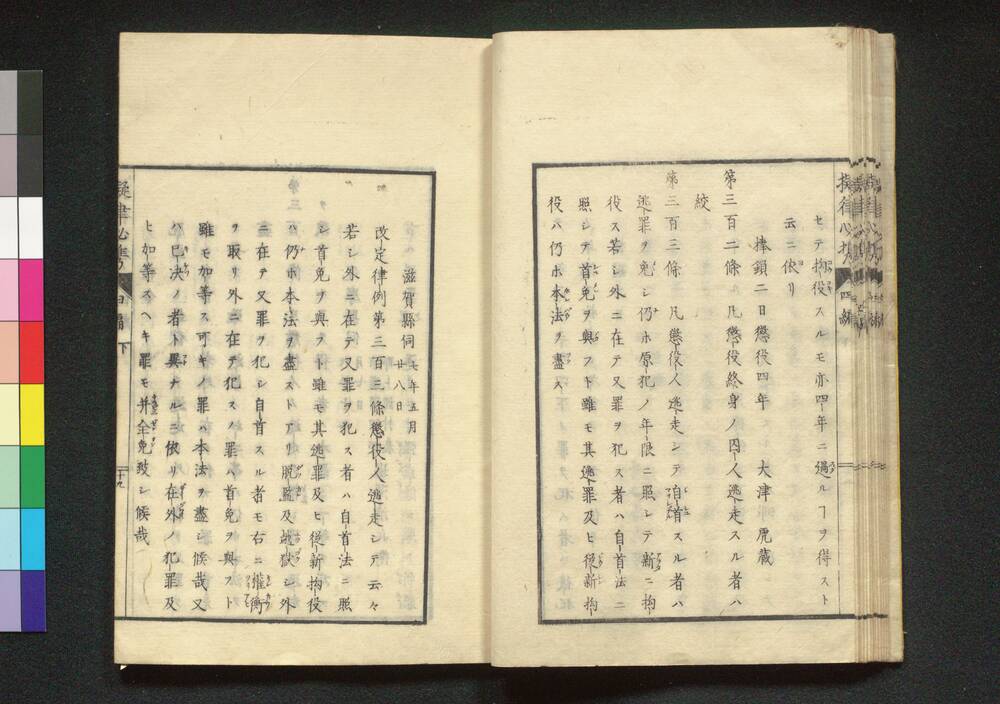 セテ拘役スルモ亦四年ニ過ルヿヲ得スト
云ニ依リ
捧鎖二日懲役四年 大津乕藏
第三百二條 凡懲役終身ノ囚人逃走スル者ハ
絞
第三百三條 凡懲役人逃走シテ自首スル者ハ
逃罪ヲ免シ仍ホ原犯ノ年限ニ照シテ新ニ拘
役ス若シ外ニ在テ又罪ヲ犯ス者ハ自首法ニ
照シテ首免ヲ與フト雖モ其逃罪及ヒ後新拘
役ハ仍ホ本法ヲ盡ス
滋賀縣伺 七年五月廿八日
改定律例第三百三條懲役人逃走シテ云々
若シ外ニ在テ又罪ヲ犯ス者ハ自首法ニ照
シ首免ヲ與フト雖モ其逃罪及ヒ後新拘役
ハ仍ホ本法ヲ盡ストアリ脱監及越獄シ外
ニ在テ又罪ヲ犯シ自首スル者モ右ニ權衡
ヲ取リ外ニ在テ犯スノ罪ハ首免ヲ與フト
雖モ加等ス可キノ罪ハ本法ヲ盡シ候哉又
ハ已決ノ者ト異ナルニ依リ在外ノ犯罪及
ヒ加等スヘキ罪モ并全免致シ候哉
下